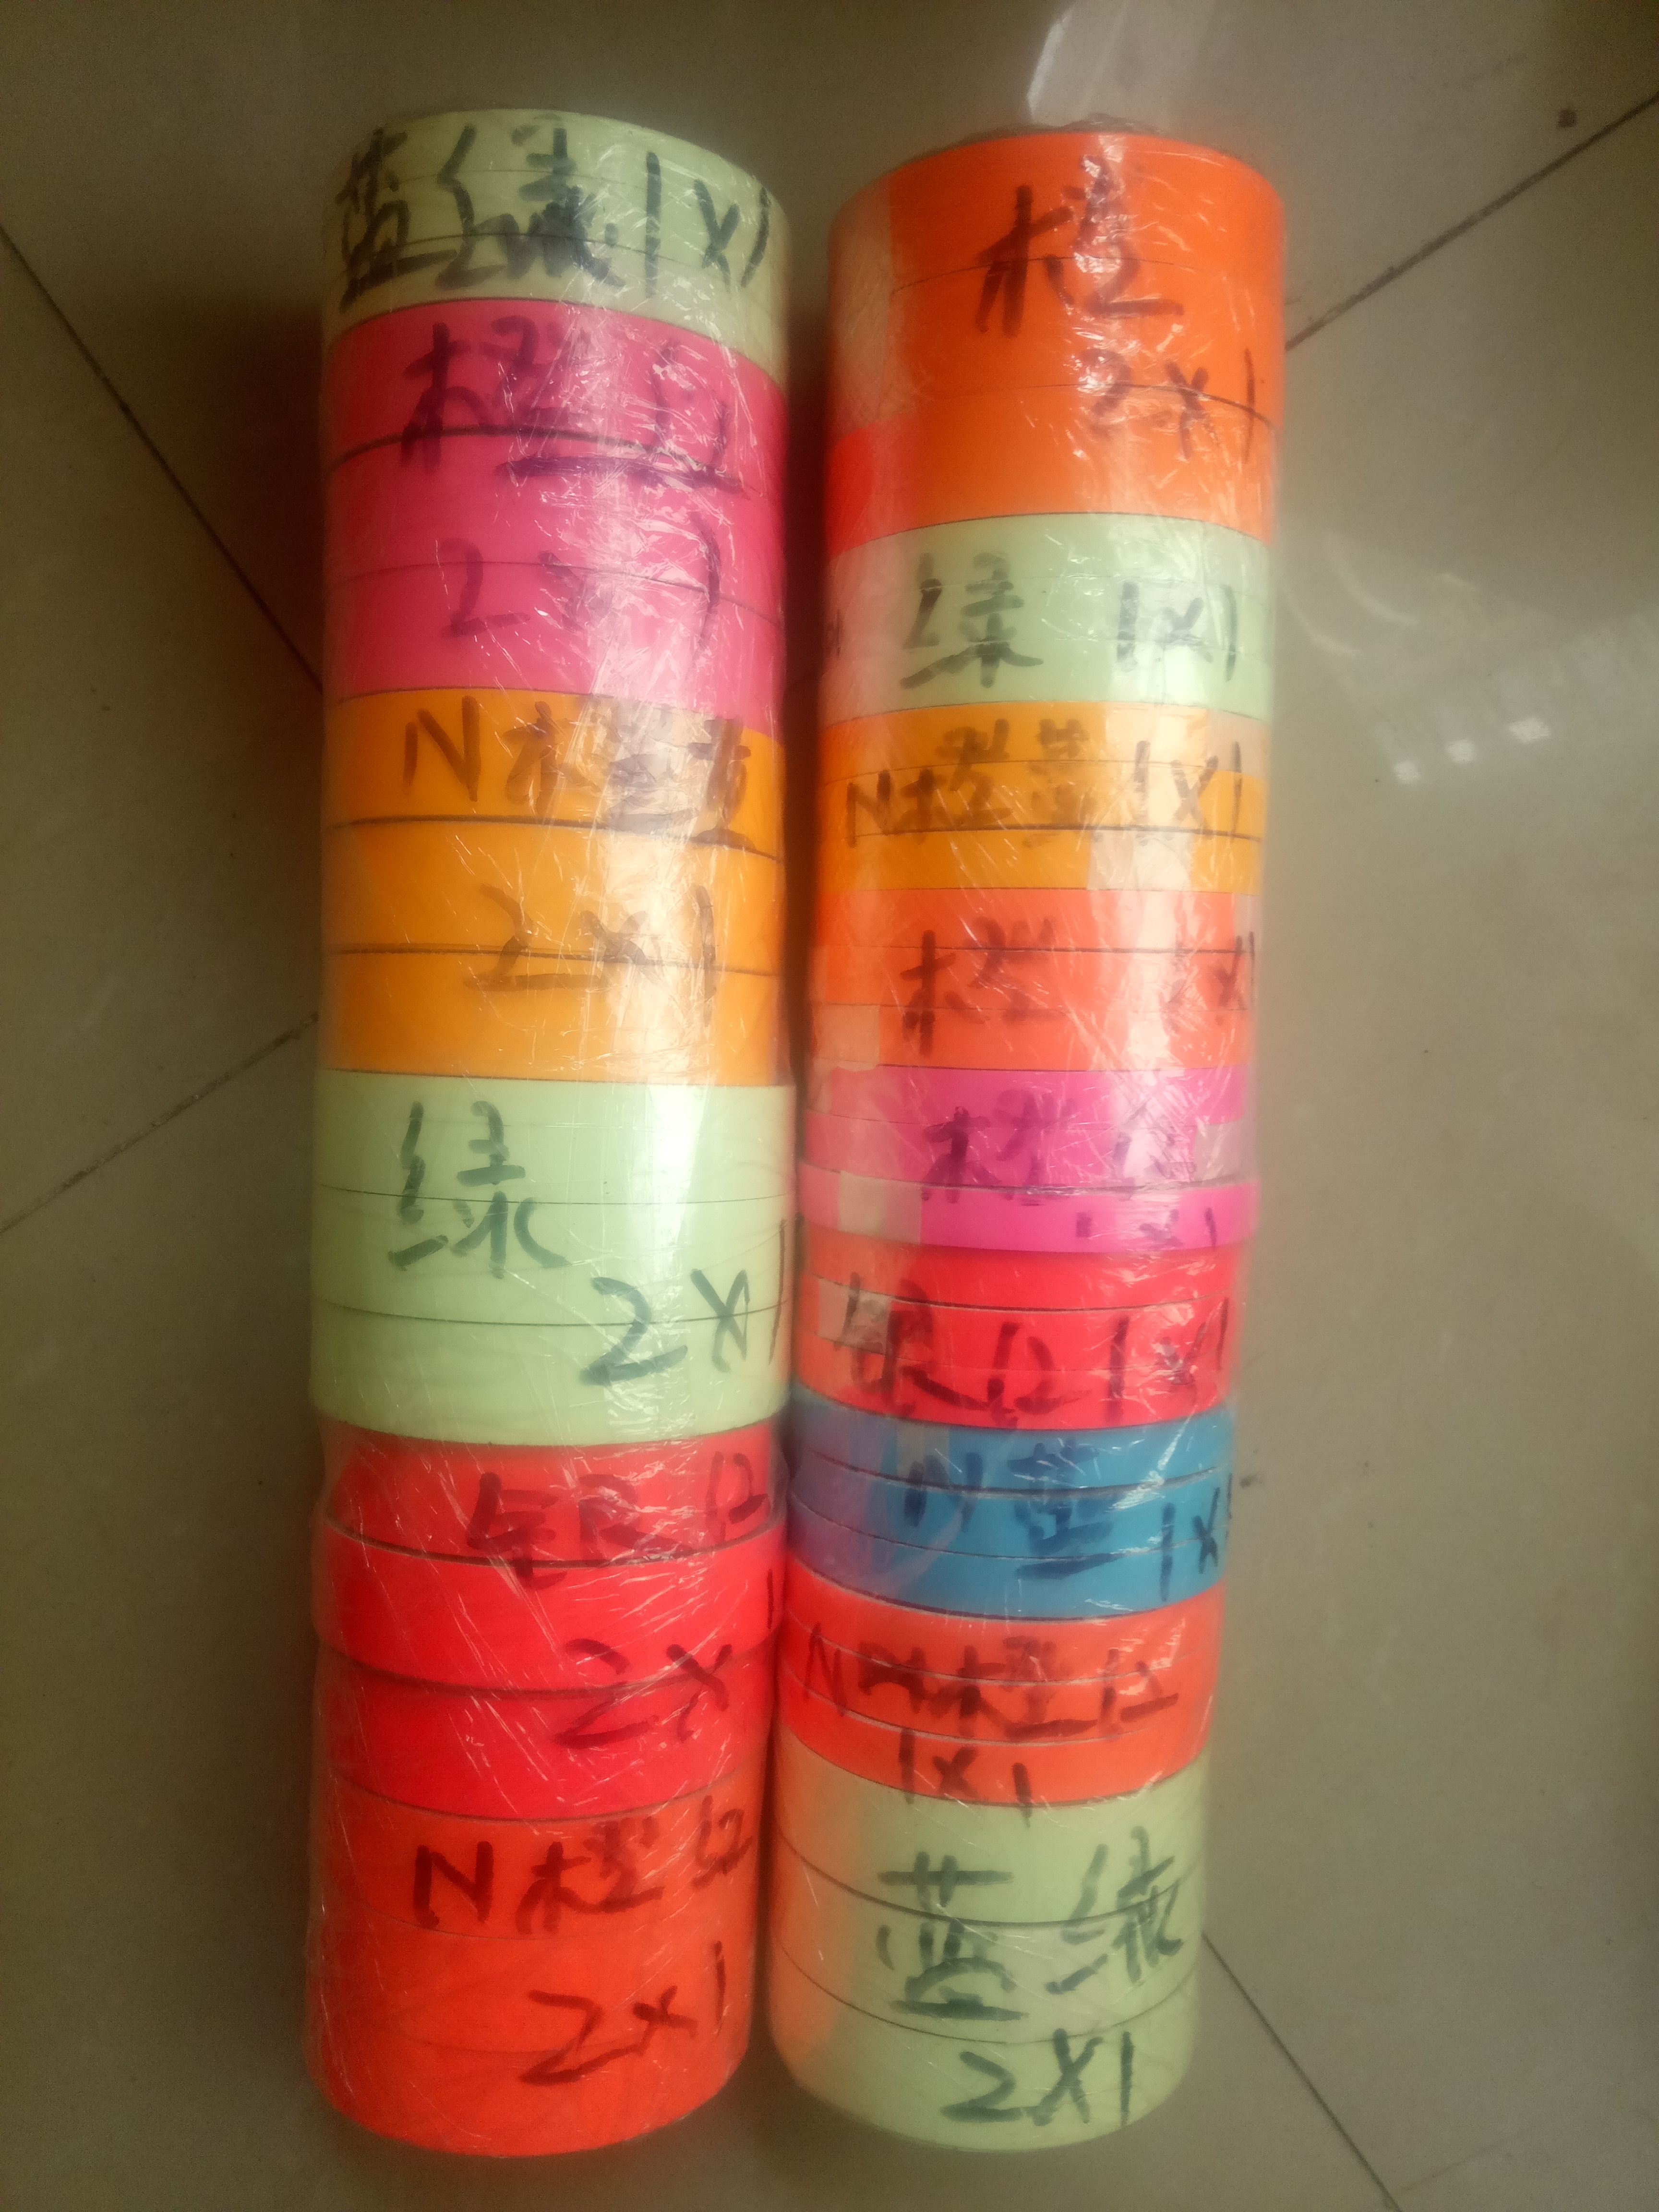 蓝绿1X1
橙红
2X1
N橙黄
2X1
绿
2X1
银红
2X1
N橙红
2X1
橙
2X1
绿 1X1
N橙黄1X1
橙 1X1
橙红
1X1
银红1X1
N蓝
1X1
N橙红
1X1
蓝绿
2X1